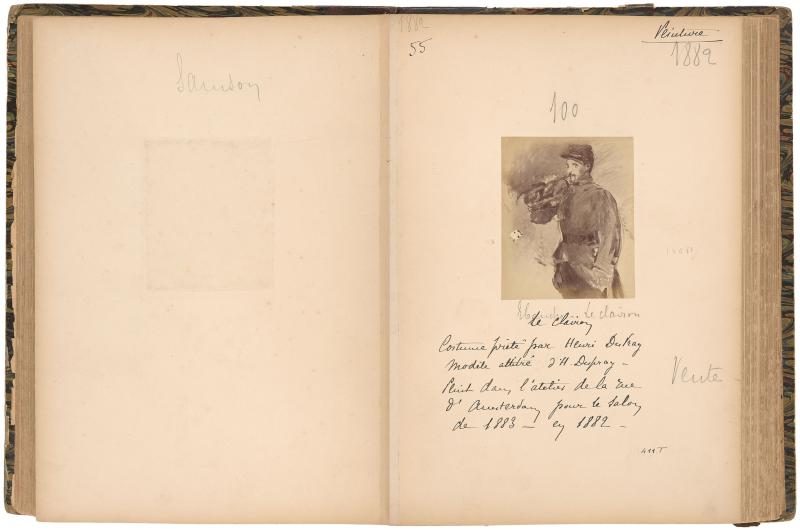 Samson
1882
55
Peinture
1882
100
Ebauche Le clairon
Le Clairon
Costume prêté par Henri Dupray
Modèle attitré d'H. Dupray -
Peint dans l'atelier de la rue
d'Amsterdam pour le Salon
de 1883 - en 1882 -
Vente -
411T